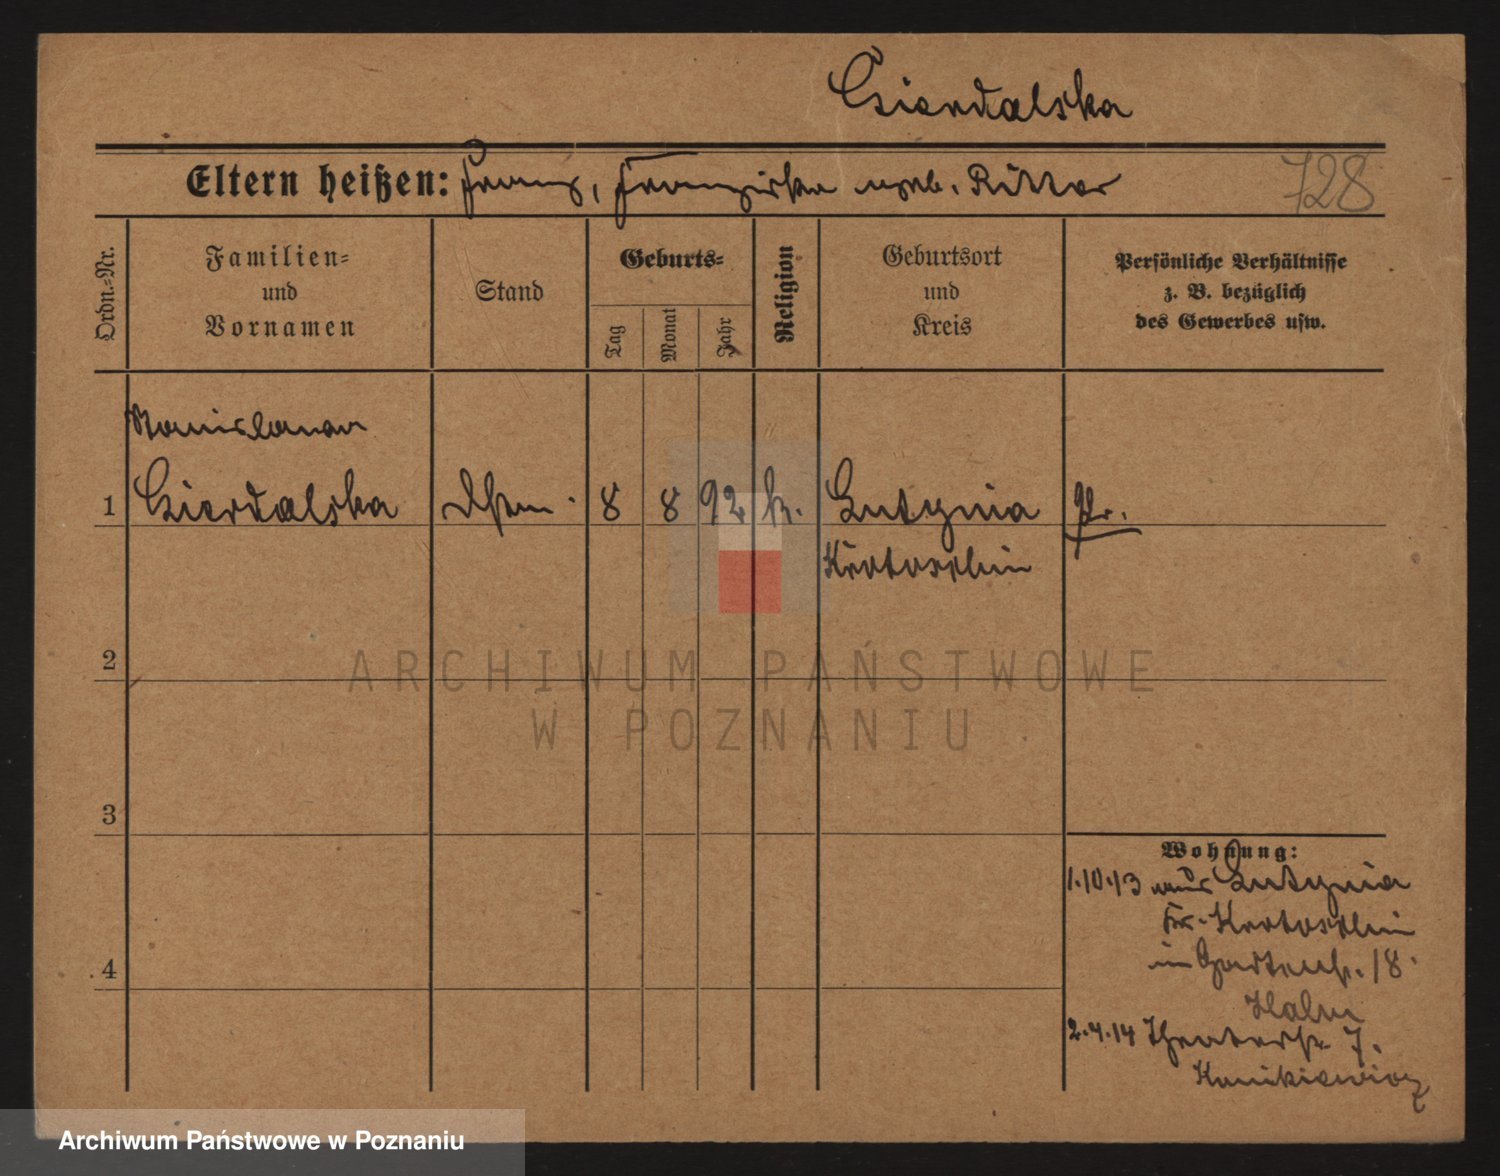 Czierdalska
Eltern heißen: Franz, Franziska geb. Ritter
728
Ordn.-Nr.
Familien-
und
Vornamen
Stand
Geburts-
Tag
Monat
Jahr
Religion
Geburtsort
und
Kreis
Persönliche Verhältnisse
z. B. bezüglich
des Gewerbes usw.
Stanislawa
1 Czierdalska 8 8 92 k. Lutynia Pr.
Krotoschin
2
ARCHIWUM PAŃSTWOWE
W POZNANIU
3
Wohnung:
1.10.13 aus Lutynia
Kr. Krotoschin
in Gartenstr. 18.
4
2.4.14 Theaterstr. 7.
Archiwum Państwowe w Poznaniu